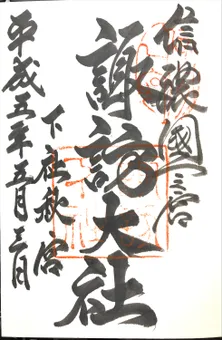 信濃國一宮
諏訪大社
下社秋宮
平成五年五月三日